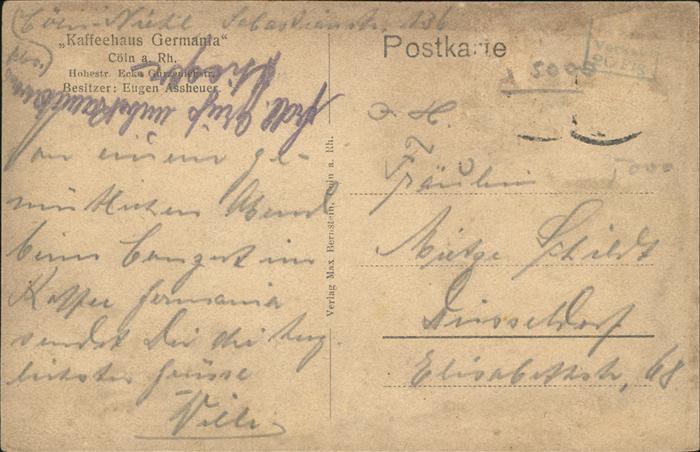 Cöln-Niehl Sebastianstr. 136
„Kaffeehaus Germania“
Cöln a. Rh.
Hohestr. Ecke Gürzenichstr.
Besitzer: Eugen Assheuer.
(Abs.)
An einem ge-
mütlichen Abend
beim Conzert im
Kaffee Germania
sendet Dir die herz-
lichsten Grüsse
Willi
Verlag Max Bernstein, Cöln a. Rh.
Postkarte
5000
Fräulein
Mietze Schildt
Düsseldorf
Elisabethstr. 68